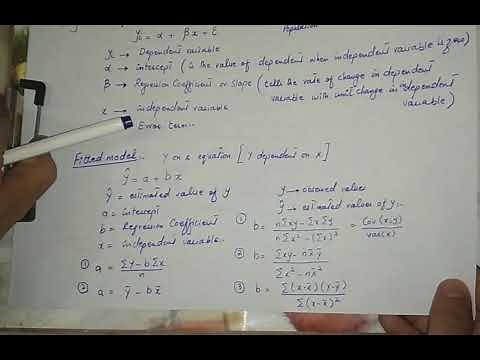 yᵢ = α + βx + ε
Population
yᵢ → Dependent variable
α → intercept (is the value of dependent when independent variable is zero)
β → Regression Coefficient or Slope (tells the rate of change in dependent
variable with unit change in independent
variable)
x → independent variable
Error term..
Fitted model.. Y on x equation [Y dependent on x]
ŷ = a + b x
ŷ = estimated value of y
a = intercept
b = Regression Coefficient
x = independent variable..
① a = (Σy - bΣx) / n
② a = ȳ - b x̄
y → observed value
ŷ → estimated values of y..
① b = (nΣxy - ΣxΣy) / (nΣx² - (Σx)²) = Cov(x,y) / var(x)
② b = (Σxy - n x̄ ȳ) / (Σx² - n x̄²)
③ b = Σ(x-x̄)(y-ȳ) / Σ(x-x̄)²